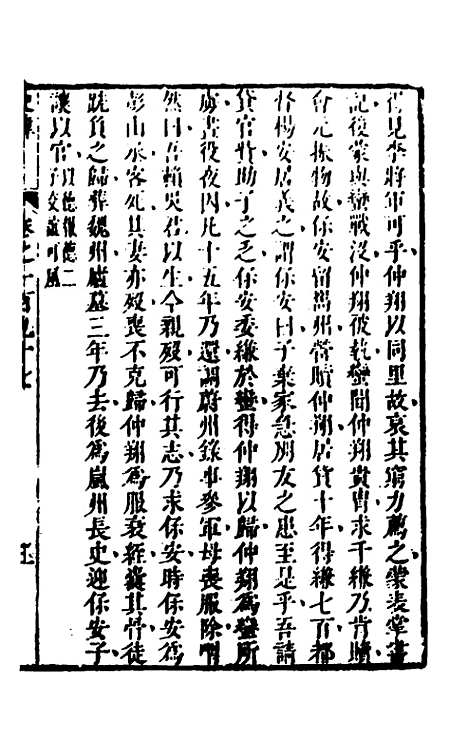 得見李將軍可乎仲翔以同里故哀其窮力薦之蒙表掌書
記後蒙與蠻戰沒仲翔被執蠻聞仲翔貴胄求千縑乃肯贖
會元振物故保安留嶲州營贖仲翔居貨十年得縑七百都
督楊安居義之謂保安曰子棄家急朋友之患至是乎吾請
貸官貲助子之乏保安委縑於蠻得仲翔以歸仲翔爲蠻所
虜晝役夜囚凡十五年乃還調蔚州錄事參軍母喪服除喟
然曰吾賴吳君以生今親歿可行其志乃求保安時保安爲
彭山丞客死其妻亦歿喪不克歸仲翔爲服衰絰囊其骨徒
跣負之歸葬魏州廬墓三年乃去後爲嵐州長史迎保安子
讓以官以德報德二子交誼可風
卷之一百九十七